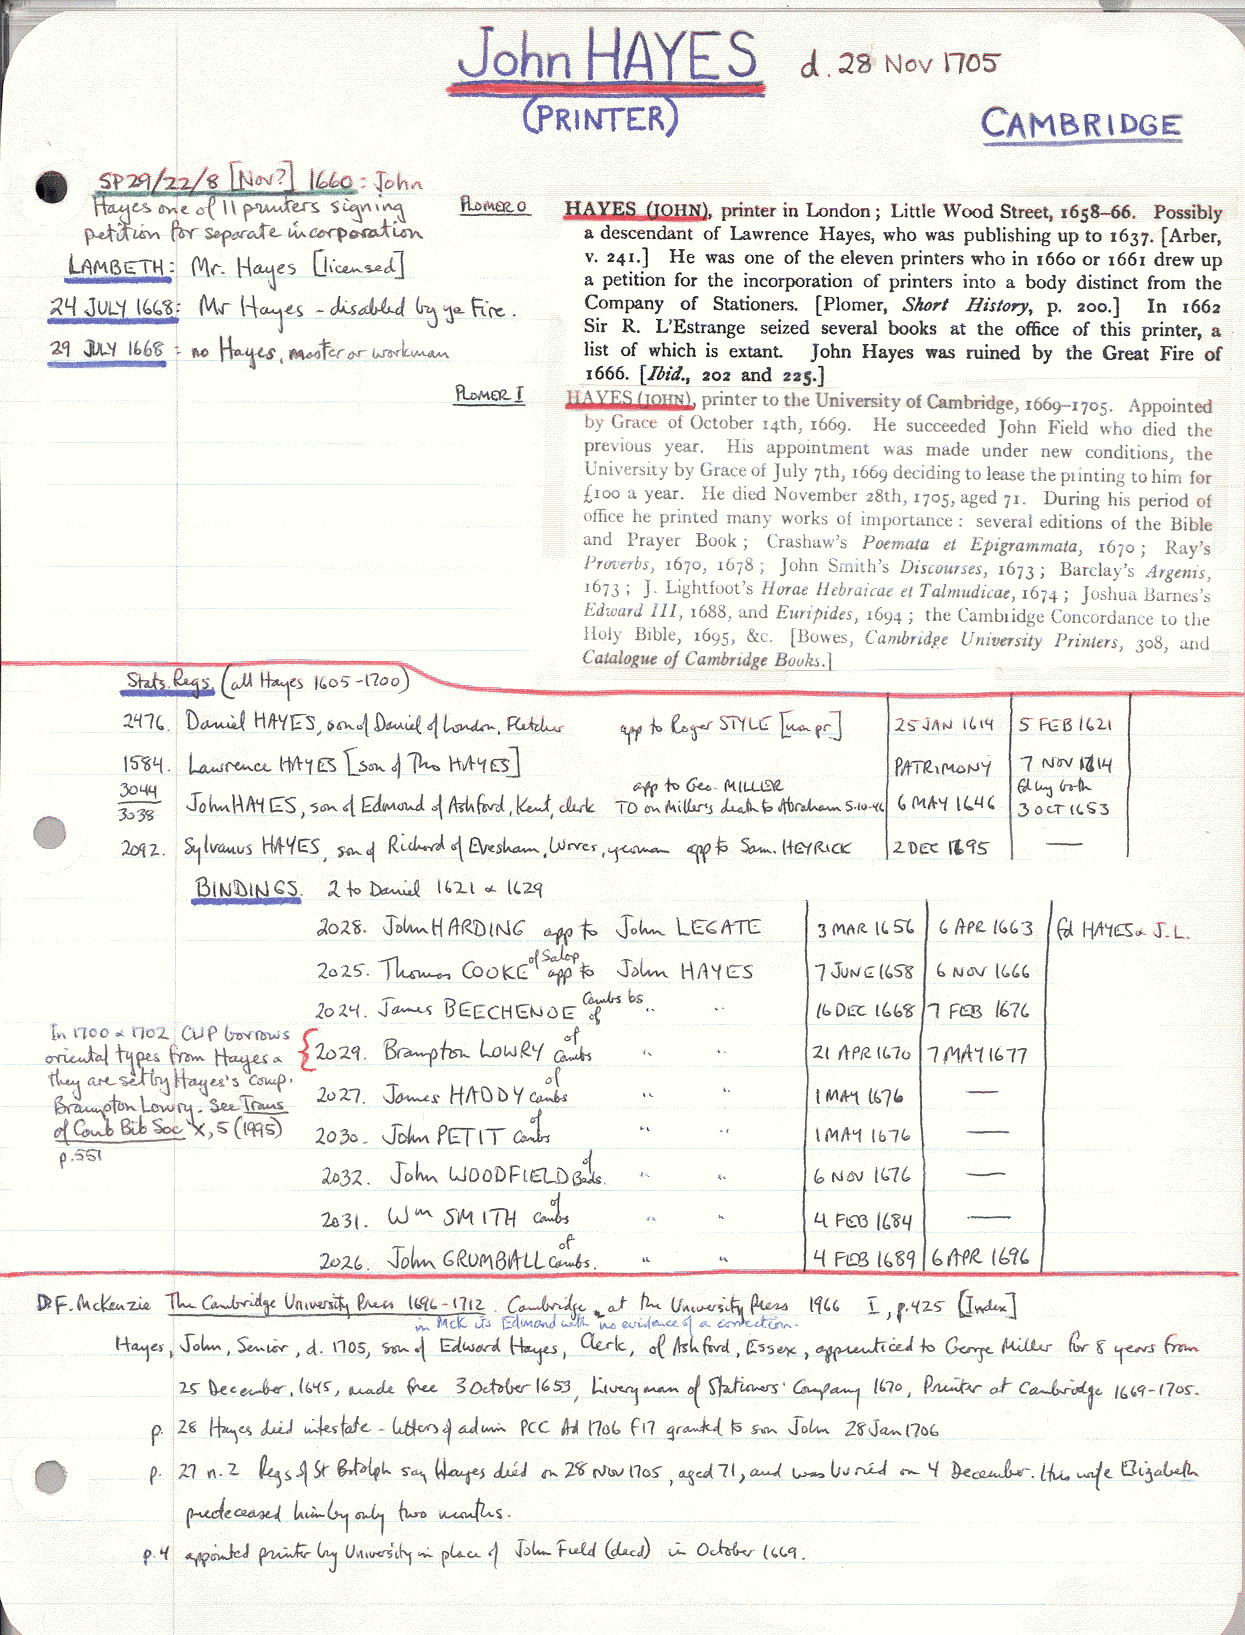 John HAYES d. 28 Nov 1705
(PRINTER)
CAMBRIDGE
SP29/22/8 [Nov?] 1660: John
Hayes one of 11 printers signing
petition for separate incorporation
LAMBETH: Mr. Hayes [licensed]
24 JULY 1668: Mr Hayes - disabled by ye Fire.
29 JULY 1668: no Hayes, master or workman
PLOMER O
HAYES (JOHN), printer in London; Little Wood Street, 1658–66. Possibly
a descendant of Lawrence Hayes, who was publishing up to 1637. [Arber,
v. 241.] He was one of the eleven printers who in 1660 or 1661 drew up
a petition for the incorporation of printers into a body distinct from the
Company of Stationers. [Plomer, Short History, p. 200.] In 1662
Sir R. L'Estrange seized several books at the office of this printer, a
list of which is extant. John Hayes was ruined by the Great Fire of
1666. [Ibid., 202 and 225.]
PLOMER I
HAYES (JOHN), printer to the University of Cambridge, 1669–1705. Appointed
by Grace of October 14th, 1669. He succeeded John Field who died the
previous year. His appointment was made under new conditions, the
University by Grace of July 7th, 1669 deciding to lease the printing to him for
£100 a year. He died November 28th, 1705, aged 71. During his period of
office he printed many works of importance: several editions of the Bible
and Prayer Book; Crashaw's Poemata et Epigrammata, 1670; Ray's
Proverbs, 1670, 1678; John Smith's Discourses, 1673; Barclay's Argenis,
1673; J. Lightfoot's Horae Hebraicae et Talmudicae, 1674; Joshua Barnes's
Edward III, 1688, and Euripides, 1694; the Cambridge Concordance to the
Holy Bible, 1695, &c. [Bowes, Cambridge University Printers, 308, and
Catalogue of Cambridge Books.]
Stats. Regs. (all Hayes 1605-1700)
2476. Daniel HAYES, son of Daniel of London, Fletcher app to Roger STYLE [non pr] 25 JAN 1614 5 FEB 1621
1584. Lawrence HAYES [son of Tho HAYES] PATRIMONY 7 NOV 1614
3044 app to Geo. MILLER fd by both
3038 John HAYES, son of Edmond of Ashford, Kent, clerk TO on Miller's death to Abraham 5-10-46 6 MAY 1646 3 OCT 1653
2092. Sylvanus HAYES, son of Richard of Evesham, Worcs, yeoman app to Sam. HEYRICK 2 DEC 1695 —
BINDINGS. 2 to Daniel 1621 & 1629
2028. John HARDING app to John LEGATE 3 MAR 1656 6 APR 1663 fd HAYES & J.L.
2025. Thomas COOKE of Salop app to John HAYES 7 JUNE 1658 6 NOV 1666
2024. James BEECHENOE of Cambs bs " " 16 DEC 1668 7 FEB 1676
2029. Brampton LOWRY of Cambs " " 21 APR 1670 7 MAY 1677
2027. James HADDY of Cambs " " 1 MAY 1676 —
2030. John PETIT of Cambs " " 1 MAY 1676 —
2032. John WOODFIELD of Beds. " " 6 NOV 1676 —
2031. Wm SMITH of Cambs " " 4 FEB 1684 —
2026. John GRUMBALL of Cambs. " " 4 FEB 1689 6 APR 1696
In 1700 & 1702 CUP borrows
oriental types from Hayes &
they are set by Hayes's comp.
Brampton Lowry. See Trans
of Camb Bib Soc X, 5 (1995)
p.551
D.F. McKenzie The Cambridge University Press 1696-1712. Cambridge, at the University Press 1966 I, p.425 [Index]
in McK its Edmond with no evidence of a correction.
Hayes, John, Senior, d. 1705, son of Edward Hayes, Clerk, of Ashford, Essex, apprenticed to George Miller for 8 years from
25 December, 1645, made free 3 October 1653, Liveryman of Stationers' Company 1670, Printer at Cambridge 1669-1705.
p. 28 Hayes died intestate - letters of admin PCC Ad 1706 f17 granted to son John 28 Jan 1706
p. 27 n.2 Regs of St Botolph say Hayes died on 28 Nov 1705, aged 71, and was buried on 4 December. His wife Elizabeth
predeceased him by only two months.
p.4 appointed printer by University in place of John Field (decd) in October 1669.